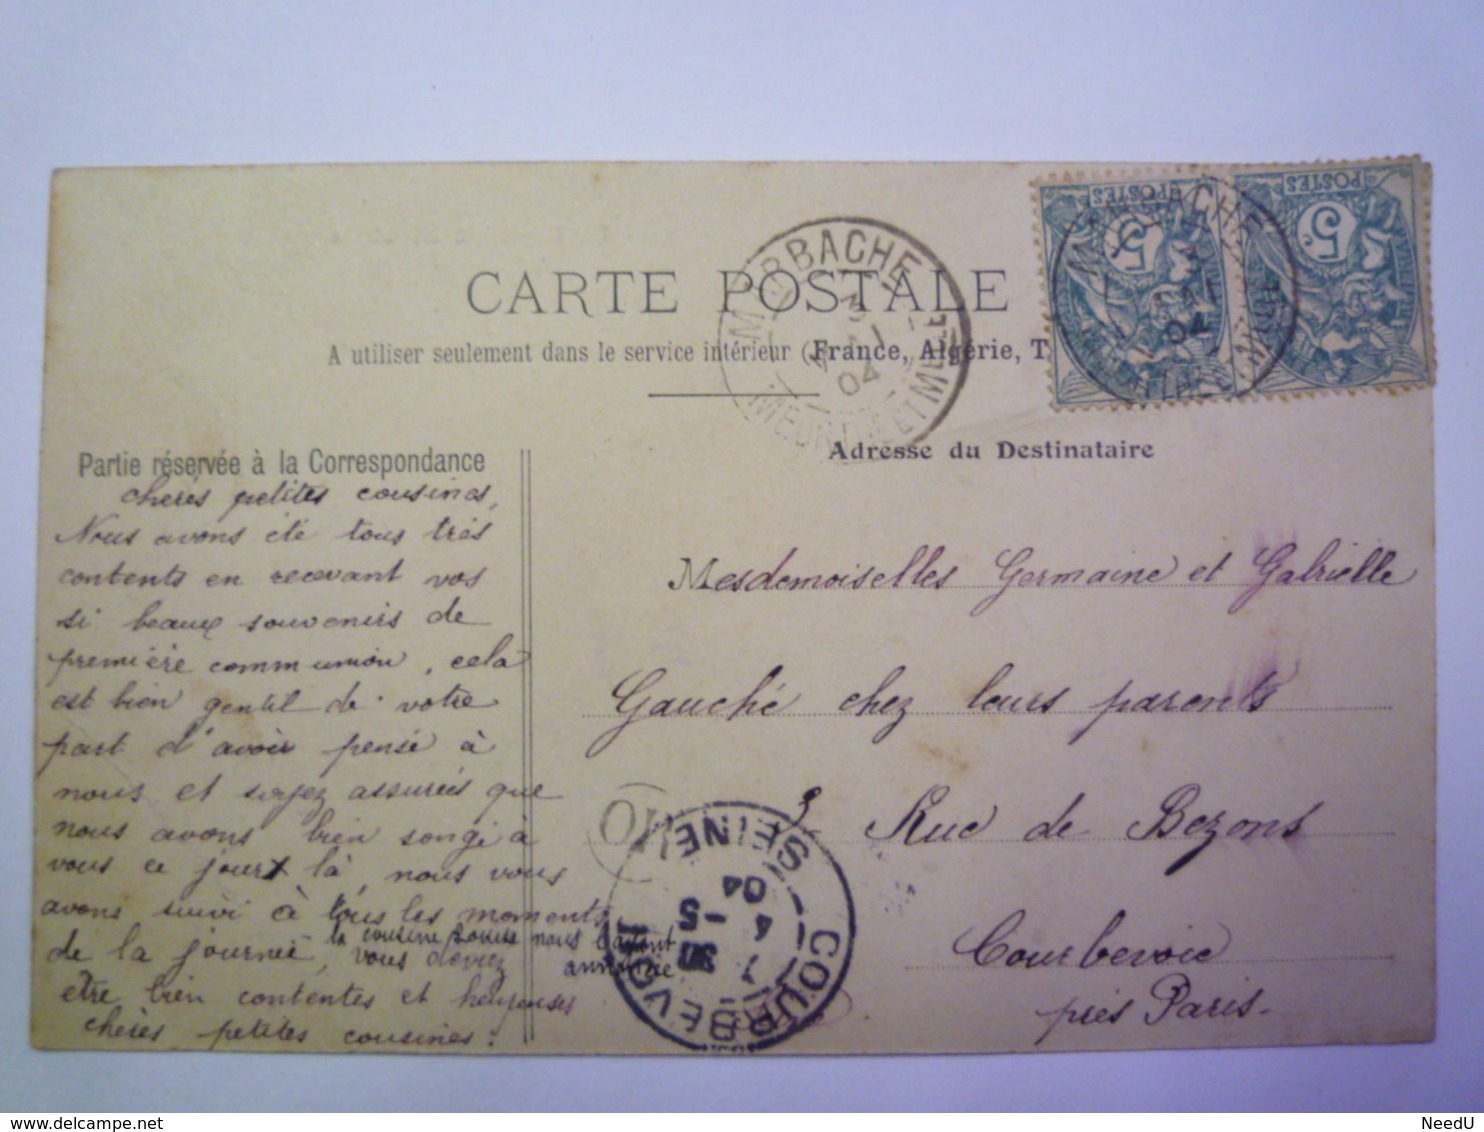 CARTE POSTALE
A utiliser seulement dans le service intérieur (France, Algérie, T
Partie réservée à la Correspondance
Adresse du Destinataire
MARBACHE
04
MEURTHE ET MLLE
MARBACHE
04
POSTES
5c
POSTES
5c
chères petites cousines,
Nous avons été tous très
contents en recevant vos
si beaux souvenirs de
première communion, cela
est bien gentil de votre
part d'avoir pensé à
nous et soyez assurées que
nous avons bien songé à
vous ce jour là, nous vous
avons suivi à tous les moments
de la journée, la cousine Louise nous l'ayant
annoncée
vous devez
être bien contentes et heureuses
chères petites cousines.
Mesdemoiselles Germaine et Gabrielle
Gauché chez leurs parents
3 Rue de Bezons
Courbevoie
près Paris.
COURBEVOIE
SEINE
4 -5
04
NeedU
NeedU